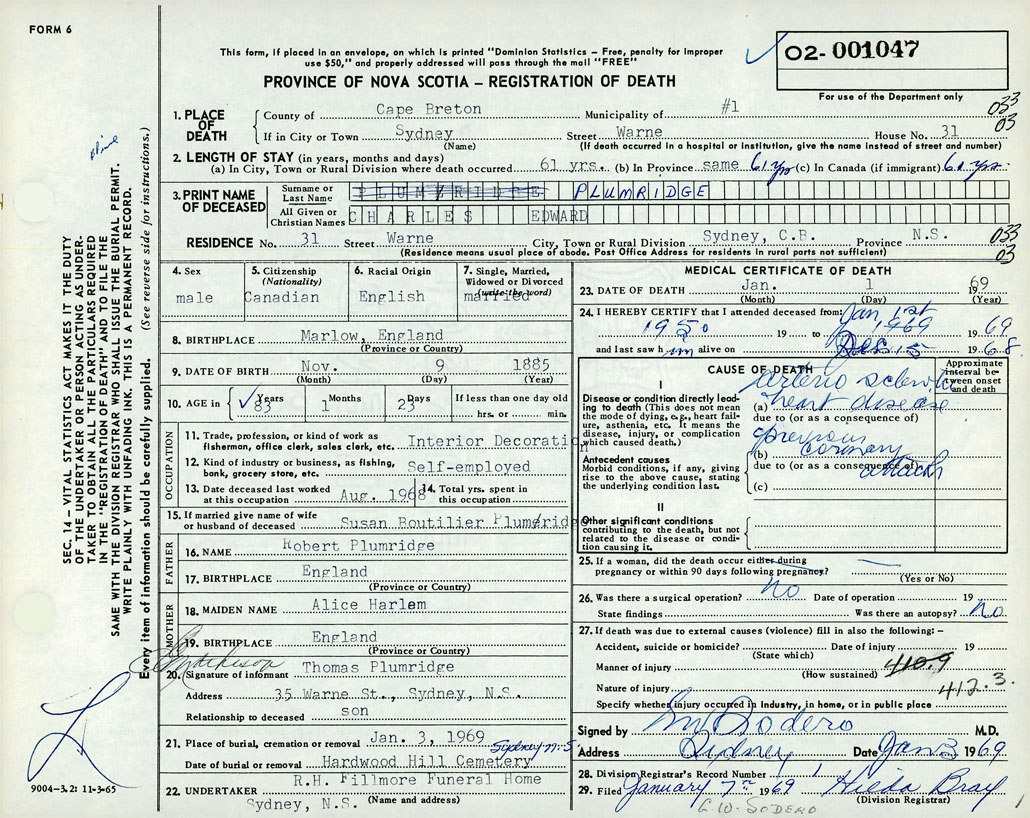 FORM 6
This form, if placed in an envelope, on which is printed "Dominion Statistics – Free, penalty for improper
use $50," and properly addressed will pass through the mail "FREE"
PROVINCE OF NOVA SCOTIA – REGISTRATION OF DEATH
02- 001047
For use of the Department only
033
03
1. PLACE OF DEATH
County of Cape Breton Municipality of #1
If in City or Town Sydney Street Warne House No. 31
(Name) (If death occurred in a hospital or institution, give the name instead of street and number)
2. LENGTH OF STAY (in years, months and days)
(a) In City, Town or Rural Division where death occurred 61 yrs. (b) In Province same 61 yrs (c) In Canada (if immigrant) 61 yrs.
3. PRINT NAME OF DECEASED
Surname or Last Name PLUMRIDGE PLUMRIDGE
All Given or Christian Names CHARLES EDWARD
RESIDENCE No. 31 Street Warne City, Town or Rural Division Sydney, C.B. Province N.S.
(Residence means usual place of abode. Post Office Address for residents in rural parts not sufficient)
033
03
4. Sex male
5. Citizenship (Nationality) Canadian
6. Racial Origin English
7. Single, Married, Widowed or Divorced (write the word) married
8. BIRTHPLACE Marlow, England
(Province or Country)
9. DATE OF BIRTH Nov. 9 1885
(Month) (Day) (Year)
10. AGE in Years 83 Months 1 Days 23 If less than one day old
hrs. or min.
OCCUPATION
11. Trade, profession, or kind of work as fisherman, office clerk, sales clerk, etc. Interior Decoration
12. Kind of industry or business, as fishing, bank, grocery store, etc. Self-employed
13. Date deceased last worked at this occupation Aug. 1968
14. Total yrs. spent in this occupation
15. If married give name of wife or husband of deceased Susan Boutilier Plumridge
FATHER
16. NAME Robert Plumridge
17. BIRTHPLACE England
(Province or Country)
MOTHER
18. MAIDEN NAME Alice Harlem
19. BIRTHPLACE England
(Province or Country)
20. Signature of informant Thomas Plumridge
Address 35 Warne St., Sydney, N.S.
Relationship to deceased son
21. Place of burial, cremation or removal Jan. 3, 1969 Sydney N.S
Date of burial or removal Hardwood Hill Cemetery
22. UNDERTAKER R.H. Fillmore Funeral Home
Sydney, N.S. (Name and address)
MEDICAL CERTIFICATE OF DEATH
23. DATE OF DEATH Jan. 1 1969
(Month) (Day) (Year)
24. I HEREBY CERTIFY that I attended deceased from: Jan 1st
1950 19 to 1969 1969
and last saw him alive on Dec 15 1968.
CAUSE OF DEATH
Approximate interval between onset and death
I
Disease or condition directly leading to death (This does not mean the mode of dying, e.g., heart failure, asthenia, etc. It means the disease, injury, or complication which caused death.)
Arterio sclerotic
(a) heart disease
due to (or as a consequence of)
previous
(b) coronary
due to (or as a consequence of) attack
(c)
Antecedent causes
Morbid conditions, if any, giving rise to the above cause, stating the underlying condition last.
II
Other significant conditions
contributing to the death, but not related to the disease or condition causing it.
25. If a woman, did the death occur either during
pregnancy or within 90 days following pregnancy?
(Yes or No)
26. Was there a surgical operation? No Date of operation 19
State findings Was there an autopsy? No
27. If death was due to external causes (violence) fill in also the following: –
Accident, suicide or homicide? Date of injury 19
(State which)
Manner of injury 410.9
(How sustained)
Nature of injury 412.3.
Specify whether injury occurred in Industry, in home, or in public place
Signed by GW Sodero M.D.
Address Sydney Date Jan 3 1969
28. Division Registrar's Record Number 1
29. Filed January 7th 1969 Hilda Bray
(Division Registrar)
G.W. SODERO
SEC. 14 – VITAL STATISTICS ACT MAKES IT THE DUTY
OF THE UNDERTAKER OR PERSON ACTING AS UNDER-
TAKER TO OBTAIN ALL THE PARTICULARS REQUIRED
IN THE "REGISTRATION OF DEATH" AND TO FILE THE
SAME WITH THE DIVISION REGISTRAR WHO SHALL ISSUE THE BURIAL PERMIT.
WRITE PLAINLY WITH UNFADING INK. THIS IS A PERMANENT RECORD.
Every item of information should be carefully supplied. (See reverse side for instructions.)
9004-3.2: 11-3-65